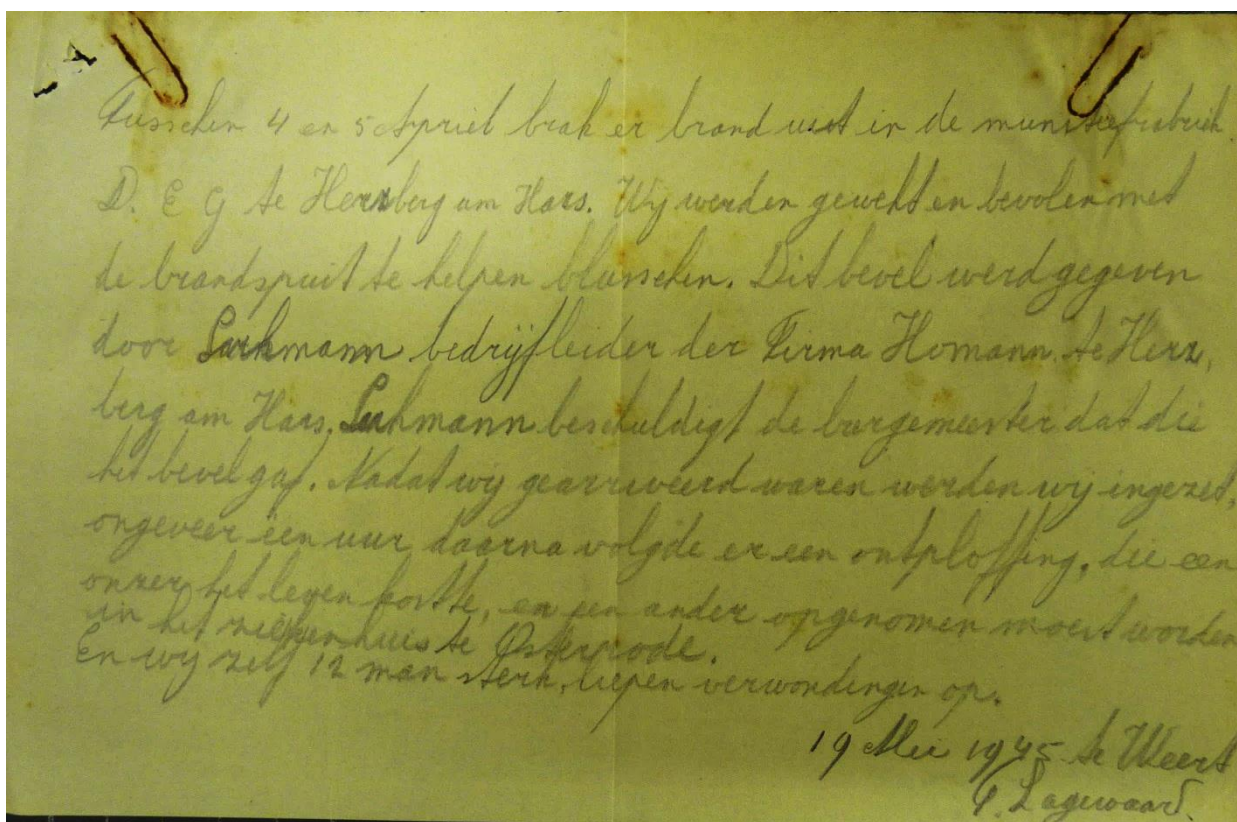 Tusschen 4 en 5 Apriel brak er brand uit in de munitiefabriek.
D. E G te Herzberg am Hars. Wij werden gewekt en bevolen met
de brandspuit te helpen blusschen. Dit bevel werd gegeven
door Luhmann bedrijfleider der Firma Homann te Herz,
berg am Hars. Luhmann beschuldigt de burgemeester dat die
het bevel gaf. Nadat wij gearriveerd waren werden wij ingezet,
ongeveer één uur daarna volgde er een ontploffing, die een
onzer het leven kostte, en een ander opgenomen moest worden
in het ziekenhuis te Osterode.
En wij zelf 12 man sterk, liepen verwondingen op.
19 Mei 1945 te Weert
Lagewaard.